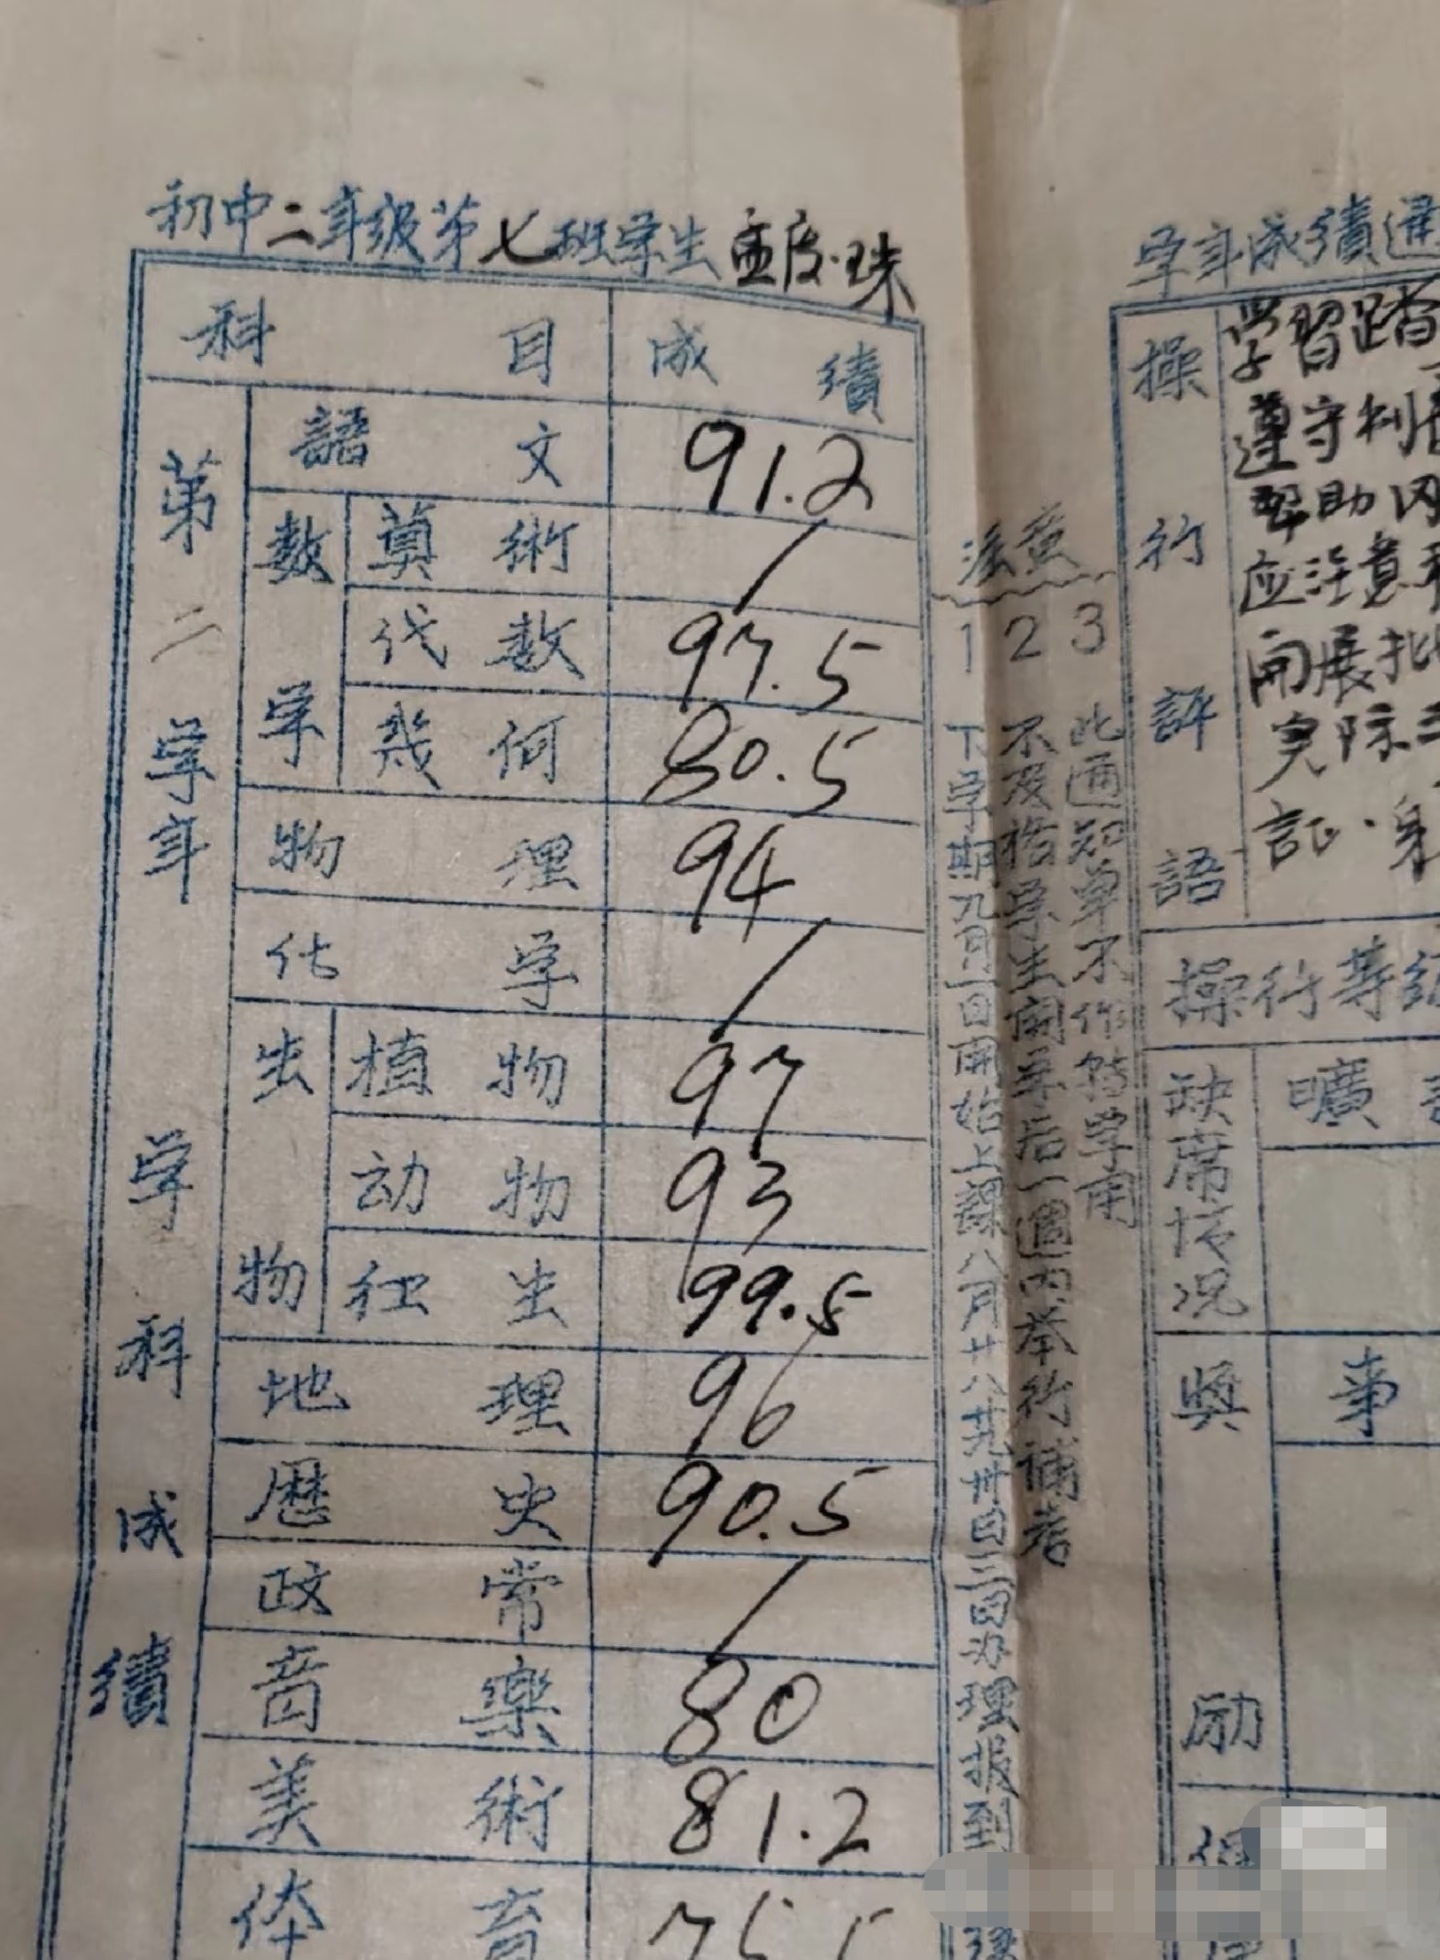 初中二年级第七班学生孟广珠
科目 成績
第二学年学科成績
語文 91.2
数学
算術 /
代数 97.5
幾何 80.5
物理 94
化学 /
生物
植物 97
动物 93
衛生 99.5
地理 96
歷史 90.5
政常 /
音樂 80
美術 81.2
体育 75.5
注意
1 下学期九月一日開始上課八月廿八廿九卅日三日办理报到
2 不及格学生開学后一週内举行補考
3 此通知单不作转学用
学年成績通
操行評語
学習踏
遵守制
帮助同
应注意
開展批
实际
言正.身
操行等
缺席情况
曠
奬励
事